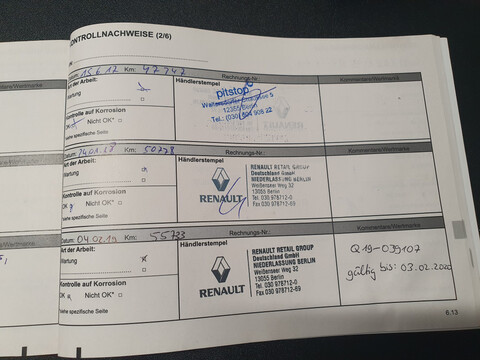 KONTROLLNACHWEISE (2/6)
Datum: 15.6.17 Km: 47747
Rechnungs-Nr.:
Kommentare/Werkmarke
Art der Arbeit:
Händlerstempel
Wartung
pitstop
12355 Berlin
Kontrolle auf Korrosion
Nicht OK*
Siehe spezifische Seite
Datum: 24.01.18 Km: 50228
Rechnungs-Nr.:
Kommentare/Werkmarke
Art der Arbeit:
Händlerstempel
Wartung
RENAULT
RENAULT RETAIL GROUP
Deutschland GmbH
NIEDERLASSUNG BERLIN
Weißenseer Weg 32
13055 Berlin
Tel. 030 978712-0
Fax 030 978712-69
Kontrolle auf Korrosion
OK Nicht OK*
Siehe spezifische Seite
Datum: 04.02.19 Km: 55723
Rechnungs-Nr.:
Kommentare/Werkmarke
Art der Arbeit:
Händlerstempel
Wartung
RENAULT
RENAULT RETAIL GROUP
Deutschland GmbH
NIEDERLASSUNG BERLIN
Weißenseer Weg 32
13055 Berlin
Tel. 030 978712-0
Fax 030 978712-69
Q19-039107
gültig bis: 03.02.2020
Kontrolle auf Korrosion
OK Nicht OK*
Siehe spezifische Seite
6.13